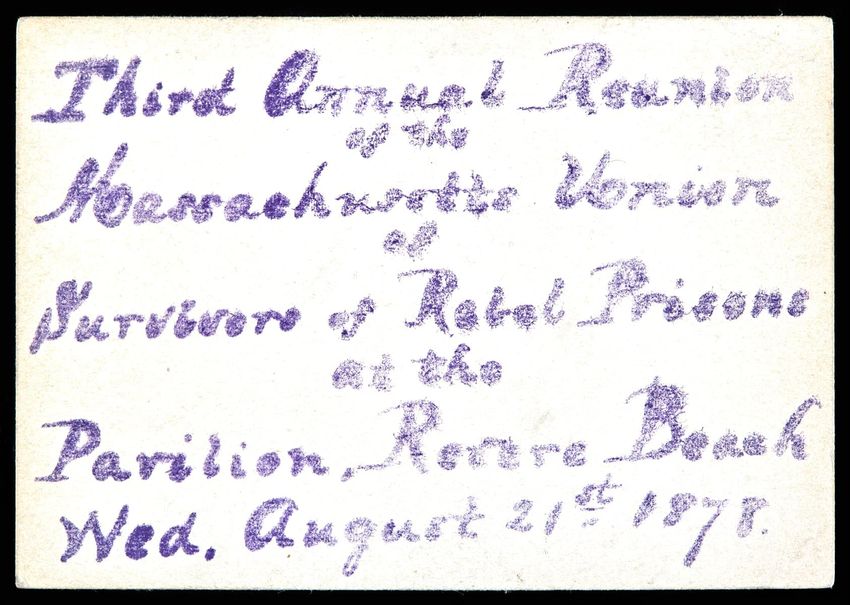 Third Annual Reunion
of the
Massachusetts Union
of
Survivors of Rebel Prisons
at the
Pavilion, Revere Beach
Wed. August 21st 1878.